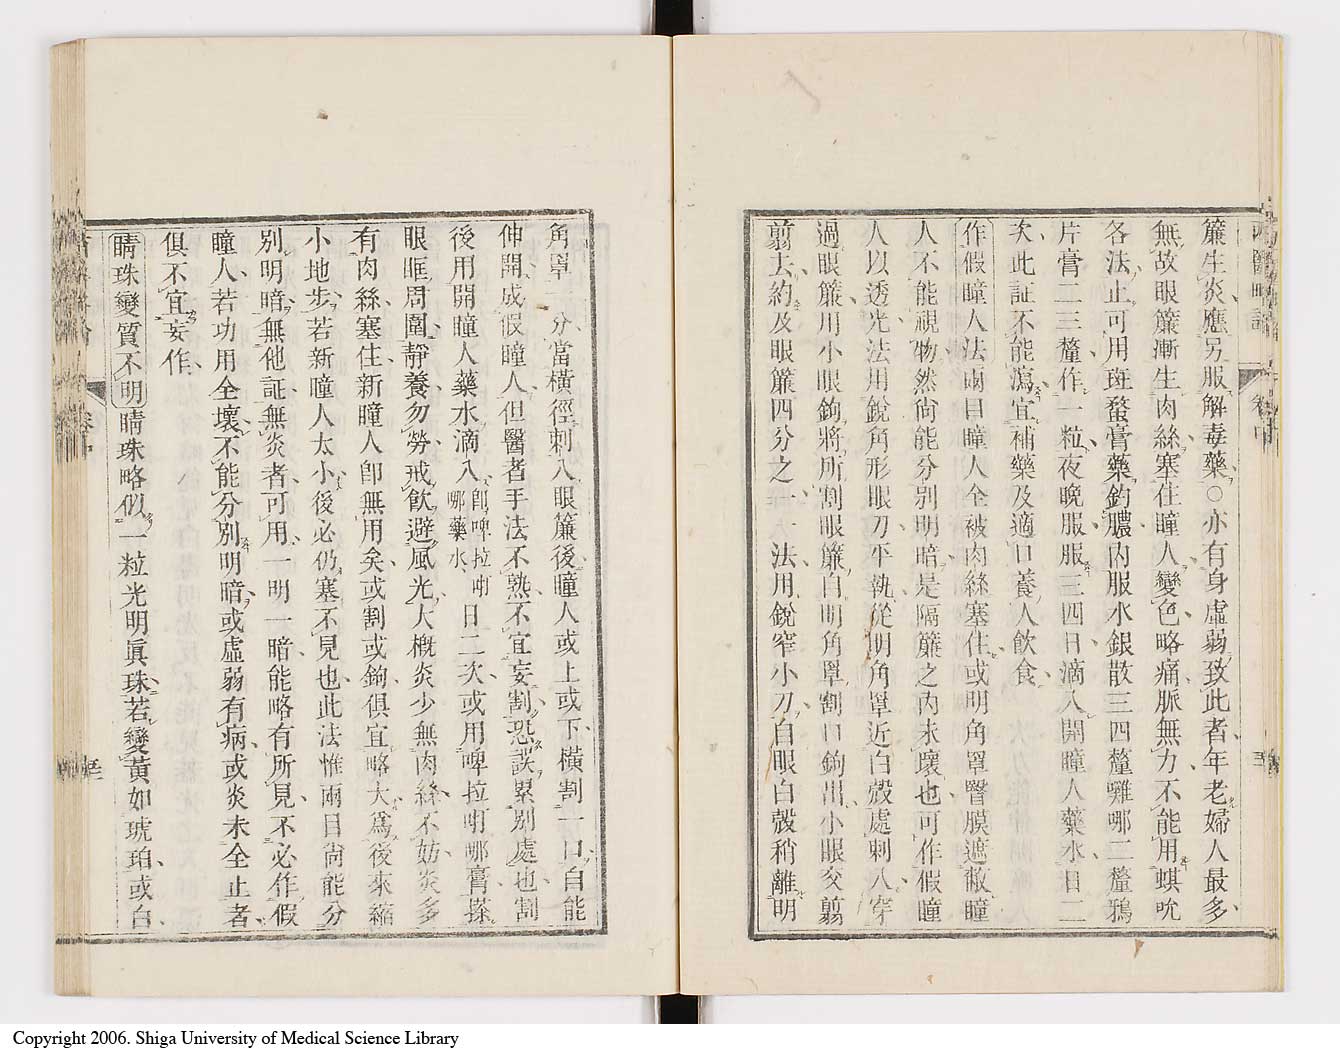 簾生炎應另服解毒藥○亦有身虛弱致此者年老婦人最多
無故眼簾漸生肉絲塞住瞳人變色略痛脈無力不能用蜞吮
各法止可用斑蝥膏藥釣膿內服水銀散三四釐囉哪二釐鴉
片膏二三釐作一粒夜晚服服三四日滴入開瞳人藥水日二
次此証不能瀉宜補藥及適口養人飲食
作假瞳人法兩目瞳人全被肉絲塞住或明角罩瞖膜遮蔽瞳
人不能視物然尙能分別明暗是隔簾之內未壞也可作假瞳
人以透光法用銳角形眼刀平執從明角罩近白殼處刺入穿
過眼簾用小眼鉤將所割眼簾自明角罩割口鉤出小眼交翦
翦去約及眼簾四分之一一法用銳窄小刀自眼白殼稍離明
角罩一分當橫徑刺入眼簾後瞳人或上或下橫割一口自能
伸開成假瞳人但醫者手法不熟不宜妄割恐誤累別處也割
後用開瞳人藥水滴入卽啤拉喇哪藥水日二次或用啤拉喇哪膏搽
眼眶周圍靜養勿勞戒飲避風光大概炎少無肉絲不妨炎多
有肉絲塞住新瞳人卽無用矣或割或鉤俱宜略大爲後來縮
小地步若新瞳人太小後必仍塞不見也此法惟兩目尙能分
別明暗無他証無炎者可用一明一暗能略有所見不必作假
瞳人若功用全壞不能分別明暗或虛弱有病或炎未全止者
俱不宜妄作
睛珠變質不明睛珠略似一粒光明眞珠若變黃如琥珀或白
Copyright 2006. Shiga University of Medical Science Library